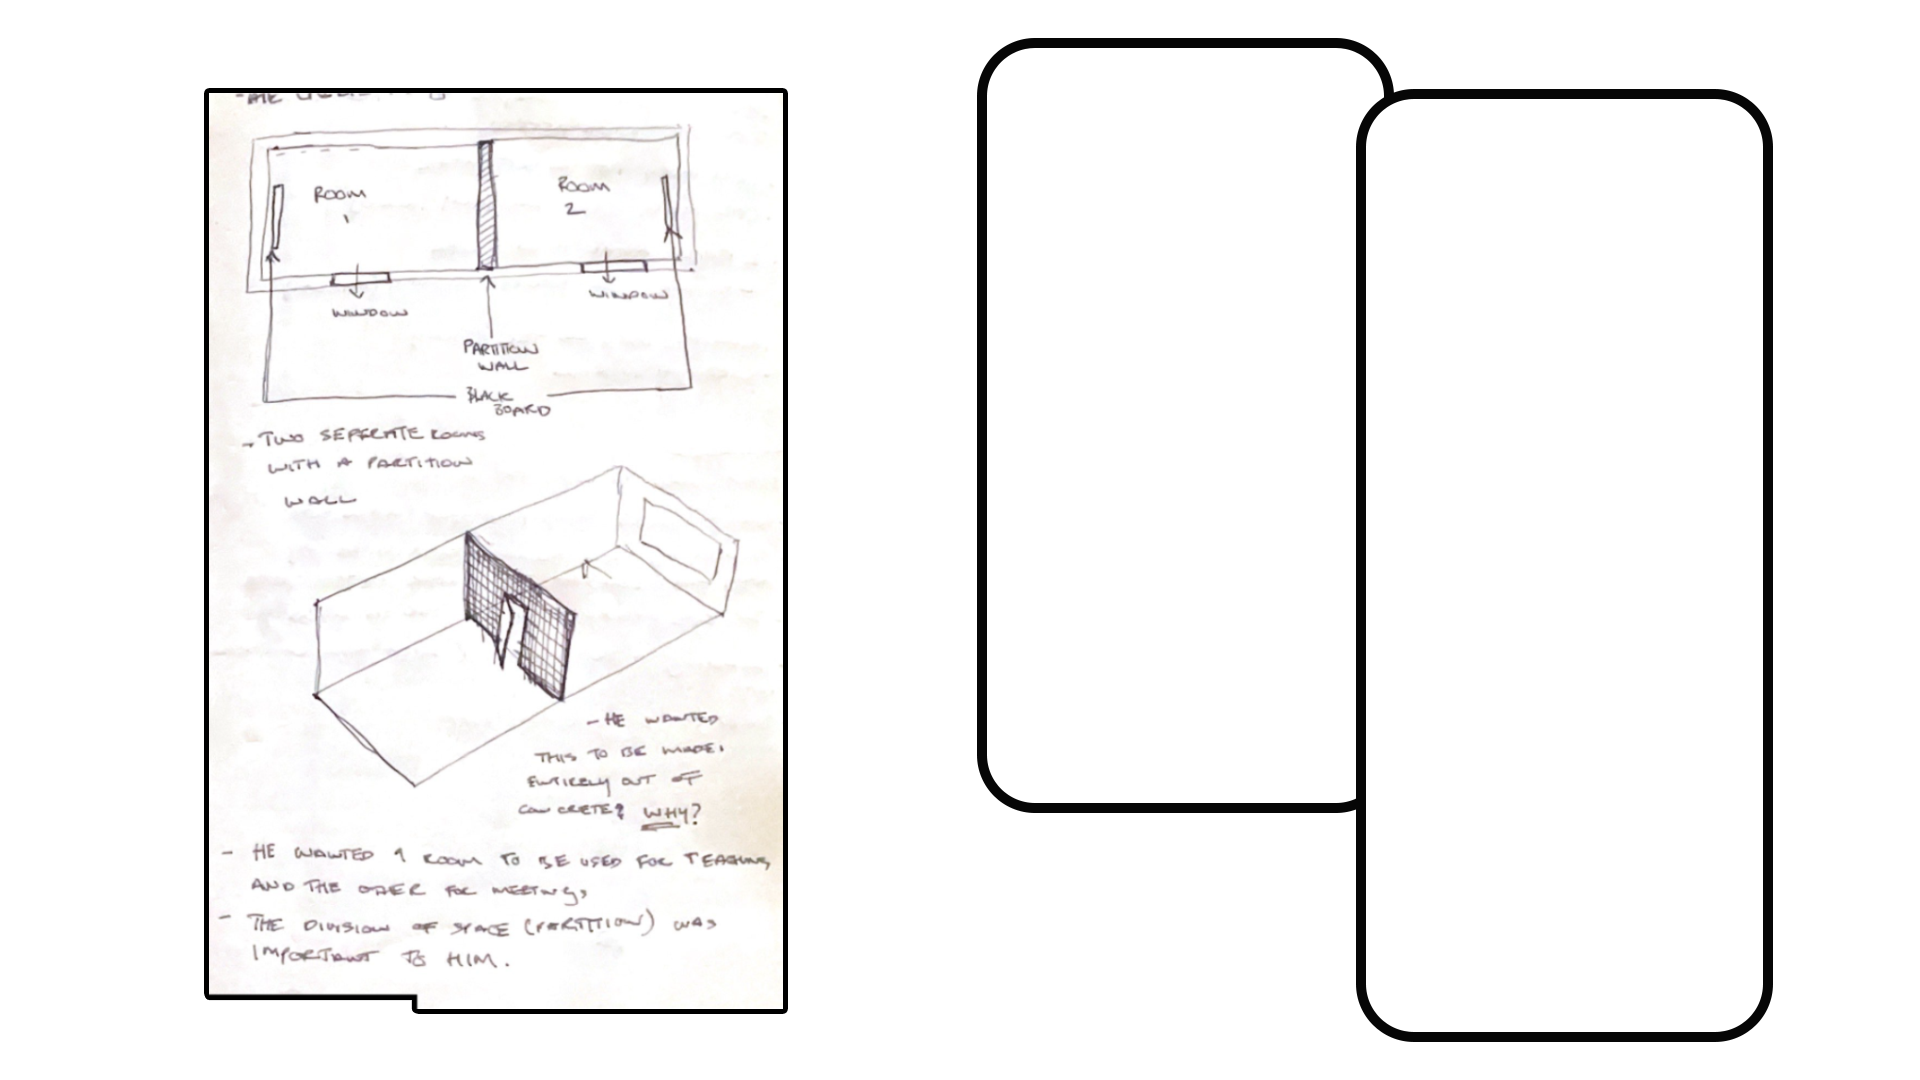 ROOM
1
ROOM
2
WINDOW
WINDOW
PARTITION
WALL
BLACK
BOARD
- TWO SEPERATE ROOMS
WITH A PARTITION
WALL
- HE WANTED
THIS TO BE MADE
ENTIRELY OUT OF
CONCRETE? WHY?
- HE WANTED 1 ROOM TO BE USED FOR TEACHING
AND THE OTHER FOR MEETINGS
- THE DIVISION OF SPACE (PARTITION) WAS
IMPORTANT TO HIM.